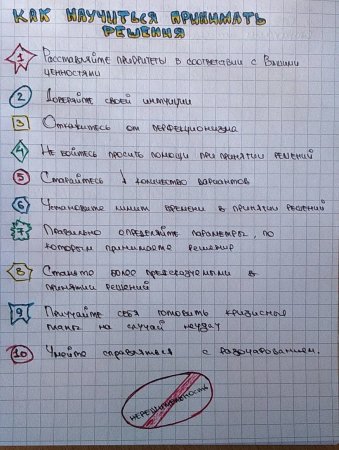 КАК НАУЧИТЬСЯ ПРИНИМАТЬ
РЕШЕНИЯ
1 Расставляйте приоритеты в соответствии с Вашими
ценностями
2 Доверяйте своей интуиции
3 Откажитесь от перфекционизма
4 Не бойтесь просить помощи при принятии решений
5 Старайтесь ↓ количество вариантов
6 Установите лимит времени в принятии решений
7 Правильно определяйте параметры, по
которым принимаете решение
8 Станьте более предсказуемыми в
принятии решений
9 Приучайте себя готовить кризисные
планы на случай неудач
10 Умейте справляться с разочарованием.
НЕРЕШИТЕЛЬНОСТЬ